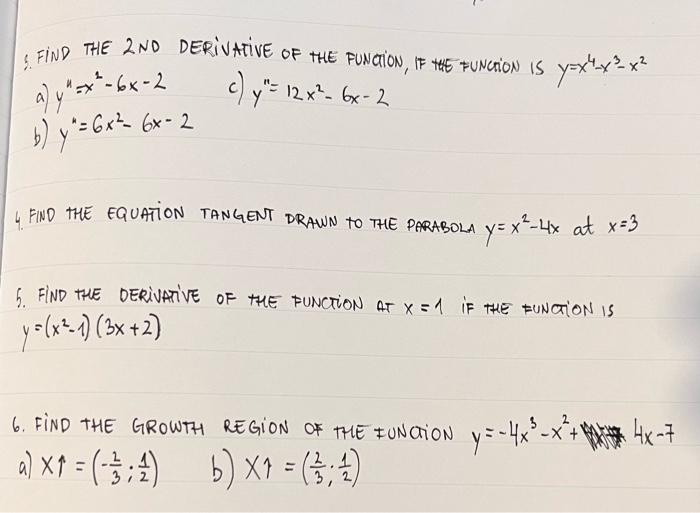 3. FIND THE 2ND DERIVATIVE OF THE FUNCTION, IF THE FUNCTION IS y=x⁴-x³-x²
a) y"=x²-6x-2 c) y"=12x²-6x-2
b) y"=6x²-6x-2
4. FIND THE EQUATION TANGENT DRAWN TO THE PARABOLA y=x²-4x at x=3
5. FIND THE DERIVATIVE OF THE FUNCTION AT x=1 IF THE FUNCTION IS
y=(x²-1)(3x+2)
6. FIND THE GROWTH REGION OF THE FUNCTION y=-4x³-x²+ 4x-7
a) x↑=(-2/3;1/2) b) x↑=(2/3;1/2)